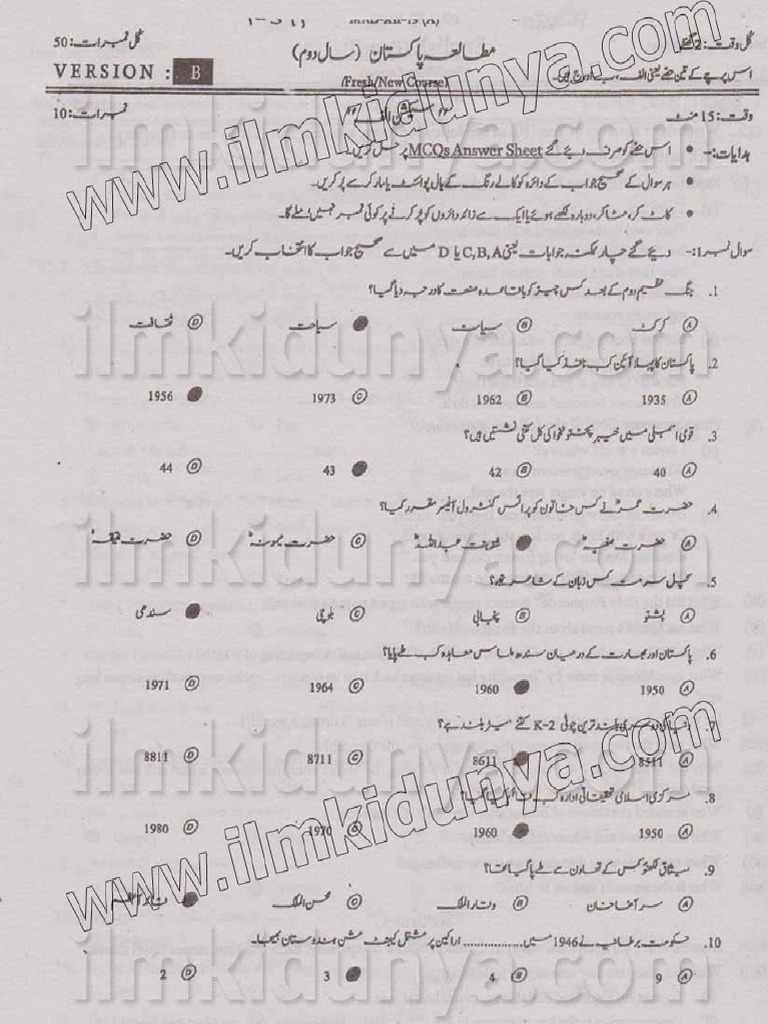 کل وقت: 2 گھنٹے
مطالعہ پاکستان (سال دوم)
کل نمبرات: 50
اس پرچے کے تین حصے یعنی الف، ب اور ج ہیں۔
(Fresh/New Course)
VERSION : B
وقت: 15 منٹ
نمبرات: 10
ہدایات:-
• اس حصے کو صرف دیئے گئے MCQs Answer Sheet پر حل کریں۔
• ہر سوال کے صحیح جواب کے دائرہ کو کالے رنگ کے بال پوائنٹ یا مارکر سے پر کریں۔
• کاٹ کر، مٹا کر، دوبارہ لکھے ہوئے یا ایک سے زائد دائروں کو پر کرنے پر کوئی نمبر نہیں ملے گا۔
سوال نمبر 1:- دیئے گئے چار ممکنہ جوابات یعنی C,B,A یا D میں سے صحیح جواب کا انتخاب کریں۔
1. جنگ عظیم دوم کے بعد کس چیز کو باقاعدہ صنعت کا درجہ دیا گیا؟
A کرکٹ B سیاست سیاحت D ثقافت
2. پاکستان کا پہلا آئین کب نافذ کیا گیا؟
A 1935 B 1962 C 1973 1956
3. قومی اسمبلی میں خیبر پختونخوا کی کل کتنی نشستیں ہیں؟
A 40 B 42 43 D 44
4. حضرت عمرؓ نے کس خاتون کو پرائس کنٹرول آفیسر مقرر کیا؟
A حضرت صفیہؓ شفا بنت عبداللہؓ C حضرت میمونہؓ D حضرت
5. سچل سرمست کس زبان کے شاعر تھے؟
A پشتو B پنجابی C بلوچی سندھی
6. پاکستان اور بھارت کے درمیان سندھ طاس معاہدہ کب طے پایا؟
A 1950 1960 C 1964 D 1971
7. دنیا کی دوسری بلند ترین چوٹی K-2 کتنے میٹر بلند ہے؟
A 8511 8611 C 8711 D 8811
8. مرکزی اسلامی تحقیقاتی ادارہ کب قائم کیا گیا؟
A 1950 1960 C 1970 D 1980
9. میثاق لکھنؤ کس کے تعاون سے طے پا گیا تھا؟
A سر آغا خان B وقار الملک C محسن الملک قائد اعظم
10. حکومت برطانیہ نے 1946 میں ................ اراکین پر مشتمل کیبنٹ مشن ہندوستان بھیجا۔
A 9 B 4 3 D 2
www.ilmkidunya.com
ilmkidunya.com
ilmkidunya.com
ilmkidunya.com
ilmkidunya.com
www.ilmkidunya.com
ilmkidunya.com
ilmkidunya.com